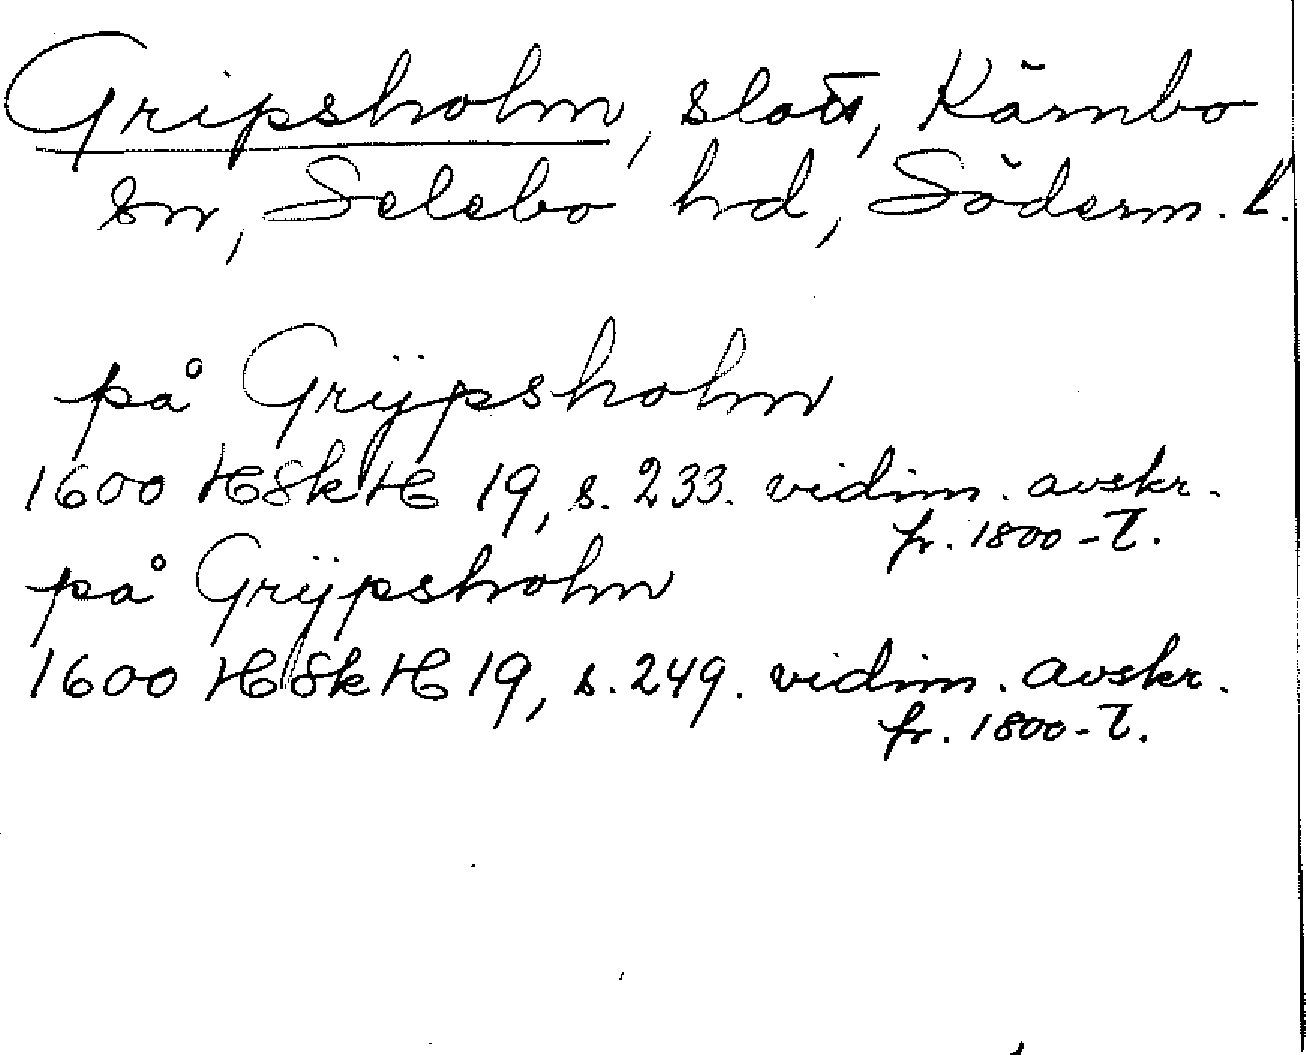 Gripsholm, slott, Kärnbo
sn, Selebo hd, Söderm. l.
på Grÿpsholm
1600 HSkH 19, s. 233. vidim. avskr.
fr. 1800-t.
på Grÿpsholm
1600 HSkH 19, s. 249. vidim. avskr.
fr. 1800-t.